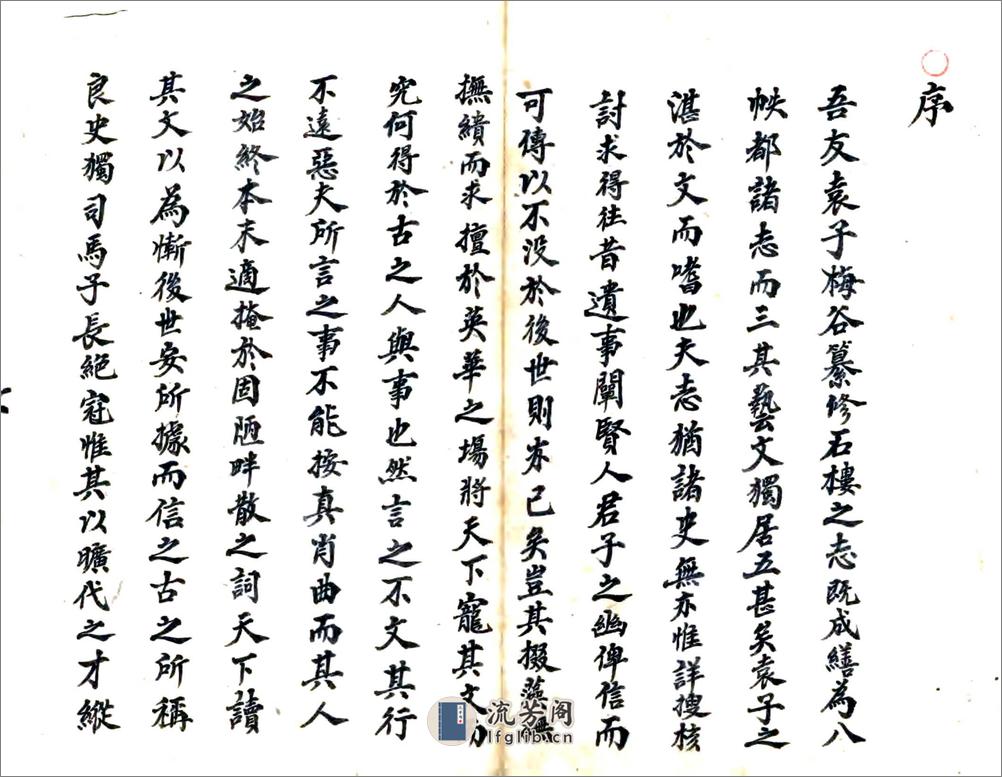 序
吾友袁子梅谷纂修石樓之志既成繕為八
帙都諸志而三其藝文獨居五甚矣袁子之
湛於文而嗜也夫志猶諸史無亦惟詳搜核
討求得往昔遺事闡賢人君子之幽俾信而
可傳以不没於後世則亦已矣豈其掇藻
撫繢而求擅於英華之場將天下寵其文
究何得於古之人與事也然言之不文其行
不遠惡夫所言之事不能按真肖曲而其人
之始終本末適掩於固陋畔散之詞天下讀
其文以為慚後世安所據而信之古之所稱
良史獨司馬子長絕冠惟其以曠代之才縱
流芳阁
lfglib.cn